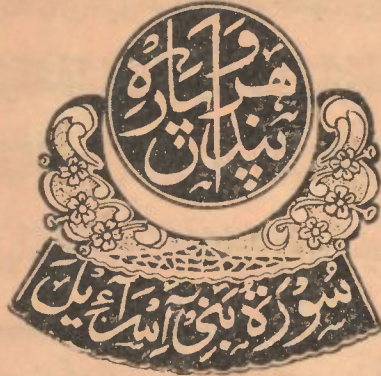 پندرھواں پارہ
سُوْرَةُ بَنِیْٓ اِسْرَآءِیْلَ